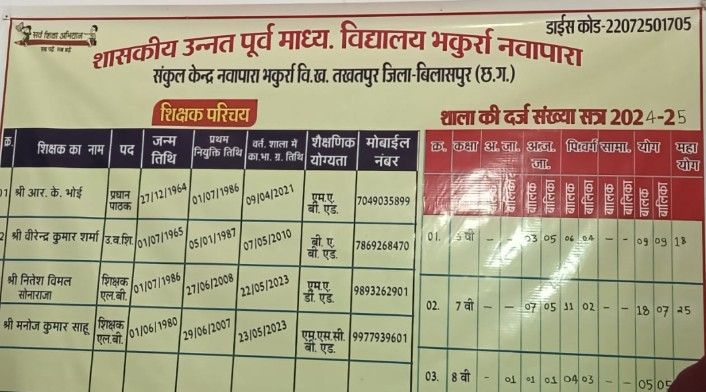 सर्व शिक्षा अभियान
सब पढ़ें सब बढ़ें
डाईस कोड-22072501705
शासकीय उन्नत पूर्व माध्य. विद्यालय भकुर्रा नवापारा
संकुल केन्द्र नवापारा भकुर्रा वि.ख. तखतपुर जिला-बिलासपुर (छ.ग.)
शिक्षक परिचय
क्र. शिक्षक का नाम पद जन्म तिथि प्रथम नियुक्ति तिथि वर्त. शाला में का.भा. ग्र. तिथि शैक्षणिक योग्यता मोबाईल नंबर
01 श्री आर. के. भोई प्रधान पाठक 27/12/1964 01/07/1986 09/04/2021 एम.ए. बी. एड. 7049035899
2 श्री वीरेन्द्र कुमार शर्मा उ.व.शि. 01/07/1965 05/01/1987 07/05/2010 बी. ए. बी. एड. 7869268470
श्री नितेश विमल सोनाराजा शिक्षक एल.बी. 01/07/1986 27/06/2008 22/05/2023 एम.ए. डी. एड. 9893262901
श्री मनोज कुमार साहू शिक्षक एल.बी. 01/06/1980 29/06/2007 23/05/2023 एम.एस.सी. बी. एड. 9977939601
शाला की दर्ज संख्या सत्र 2024-25
क्र. कक्षा अ. जा. अ.ज. जा. पि.वर्ग सामा. योग महा योग
बालिका बालक बालिका बालक बालिका बालक बालिका बालक बालिका
01. वी - - 03 05 06 04 - - 09 09 18
02. 7 वी - - 07 05 11 02 - - 18 07 25
03. 8 वी - 01 01 01 04 03 - - 05 05